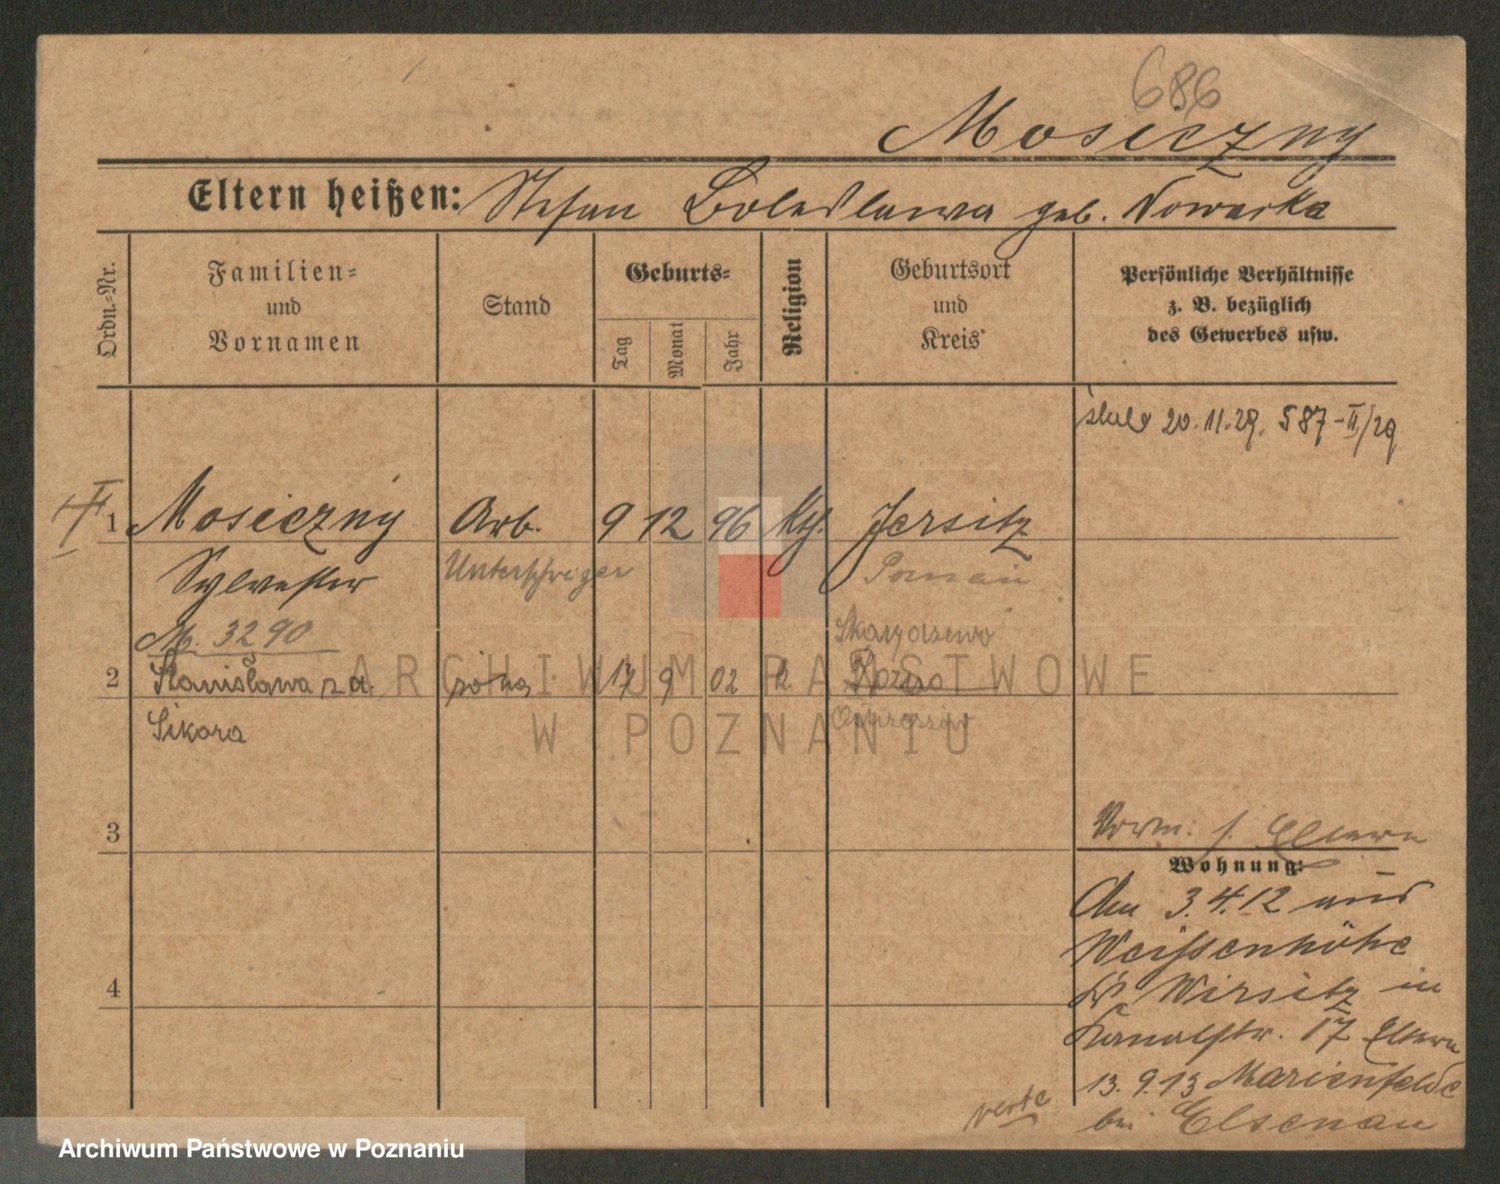 686
Mosiczny
Eltern heißen: Stefan Boleslawa geb. Nowacka
Ordn.-Nr.
Familien-
und
Vornamen
Stand
Geburts-
Tag
Monat
Jahr
Religion
Geburtsort
und
Kreis
Persönliche Verhältnisse
z. B. bezüglich
des Gewerbes usw.
20.11.29. 587-II/29
1 Mosiczny Arb. 9 12 96 Kth. Jersitz
Sylvester Posnań
M. 3290
2 Stanisława z d. 17 9 02
Sikora
3
4
Vorm. s. Eltern
Wohnung:
Am 3.4.12 aus
Weissenhöhe
Kr. Wirsitz in
Kanalstr. 17 Eltern
13.9.13 Marienfelde
bei Elsenau
verte
ARCHIWUM PAŃSTWOWE
W POZNANIU
Archiwum Państwowe w Poznaniu